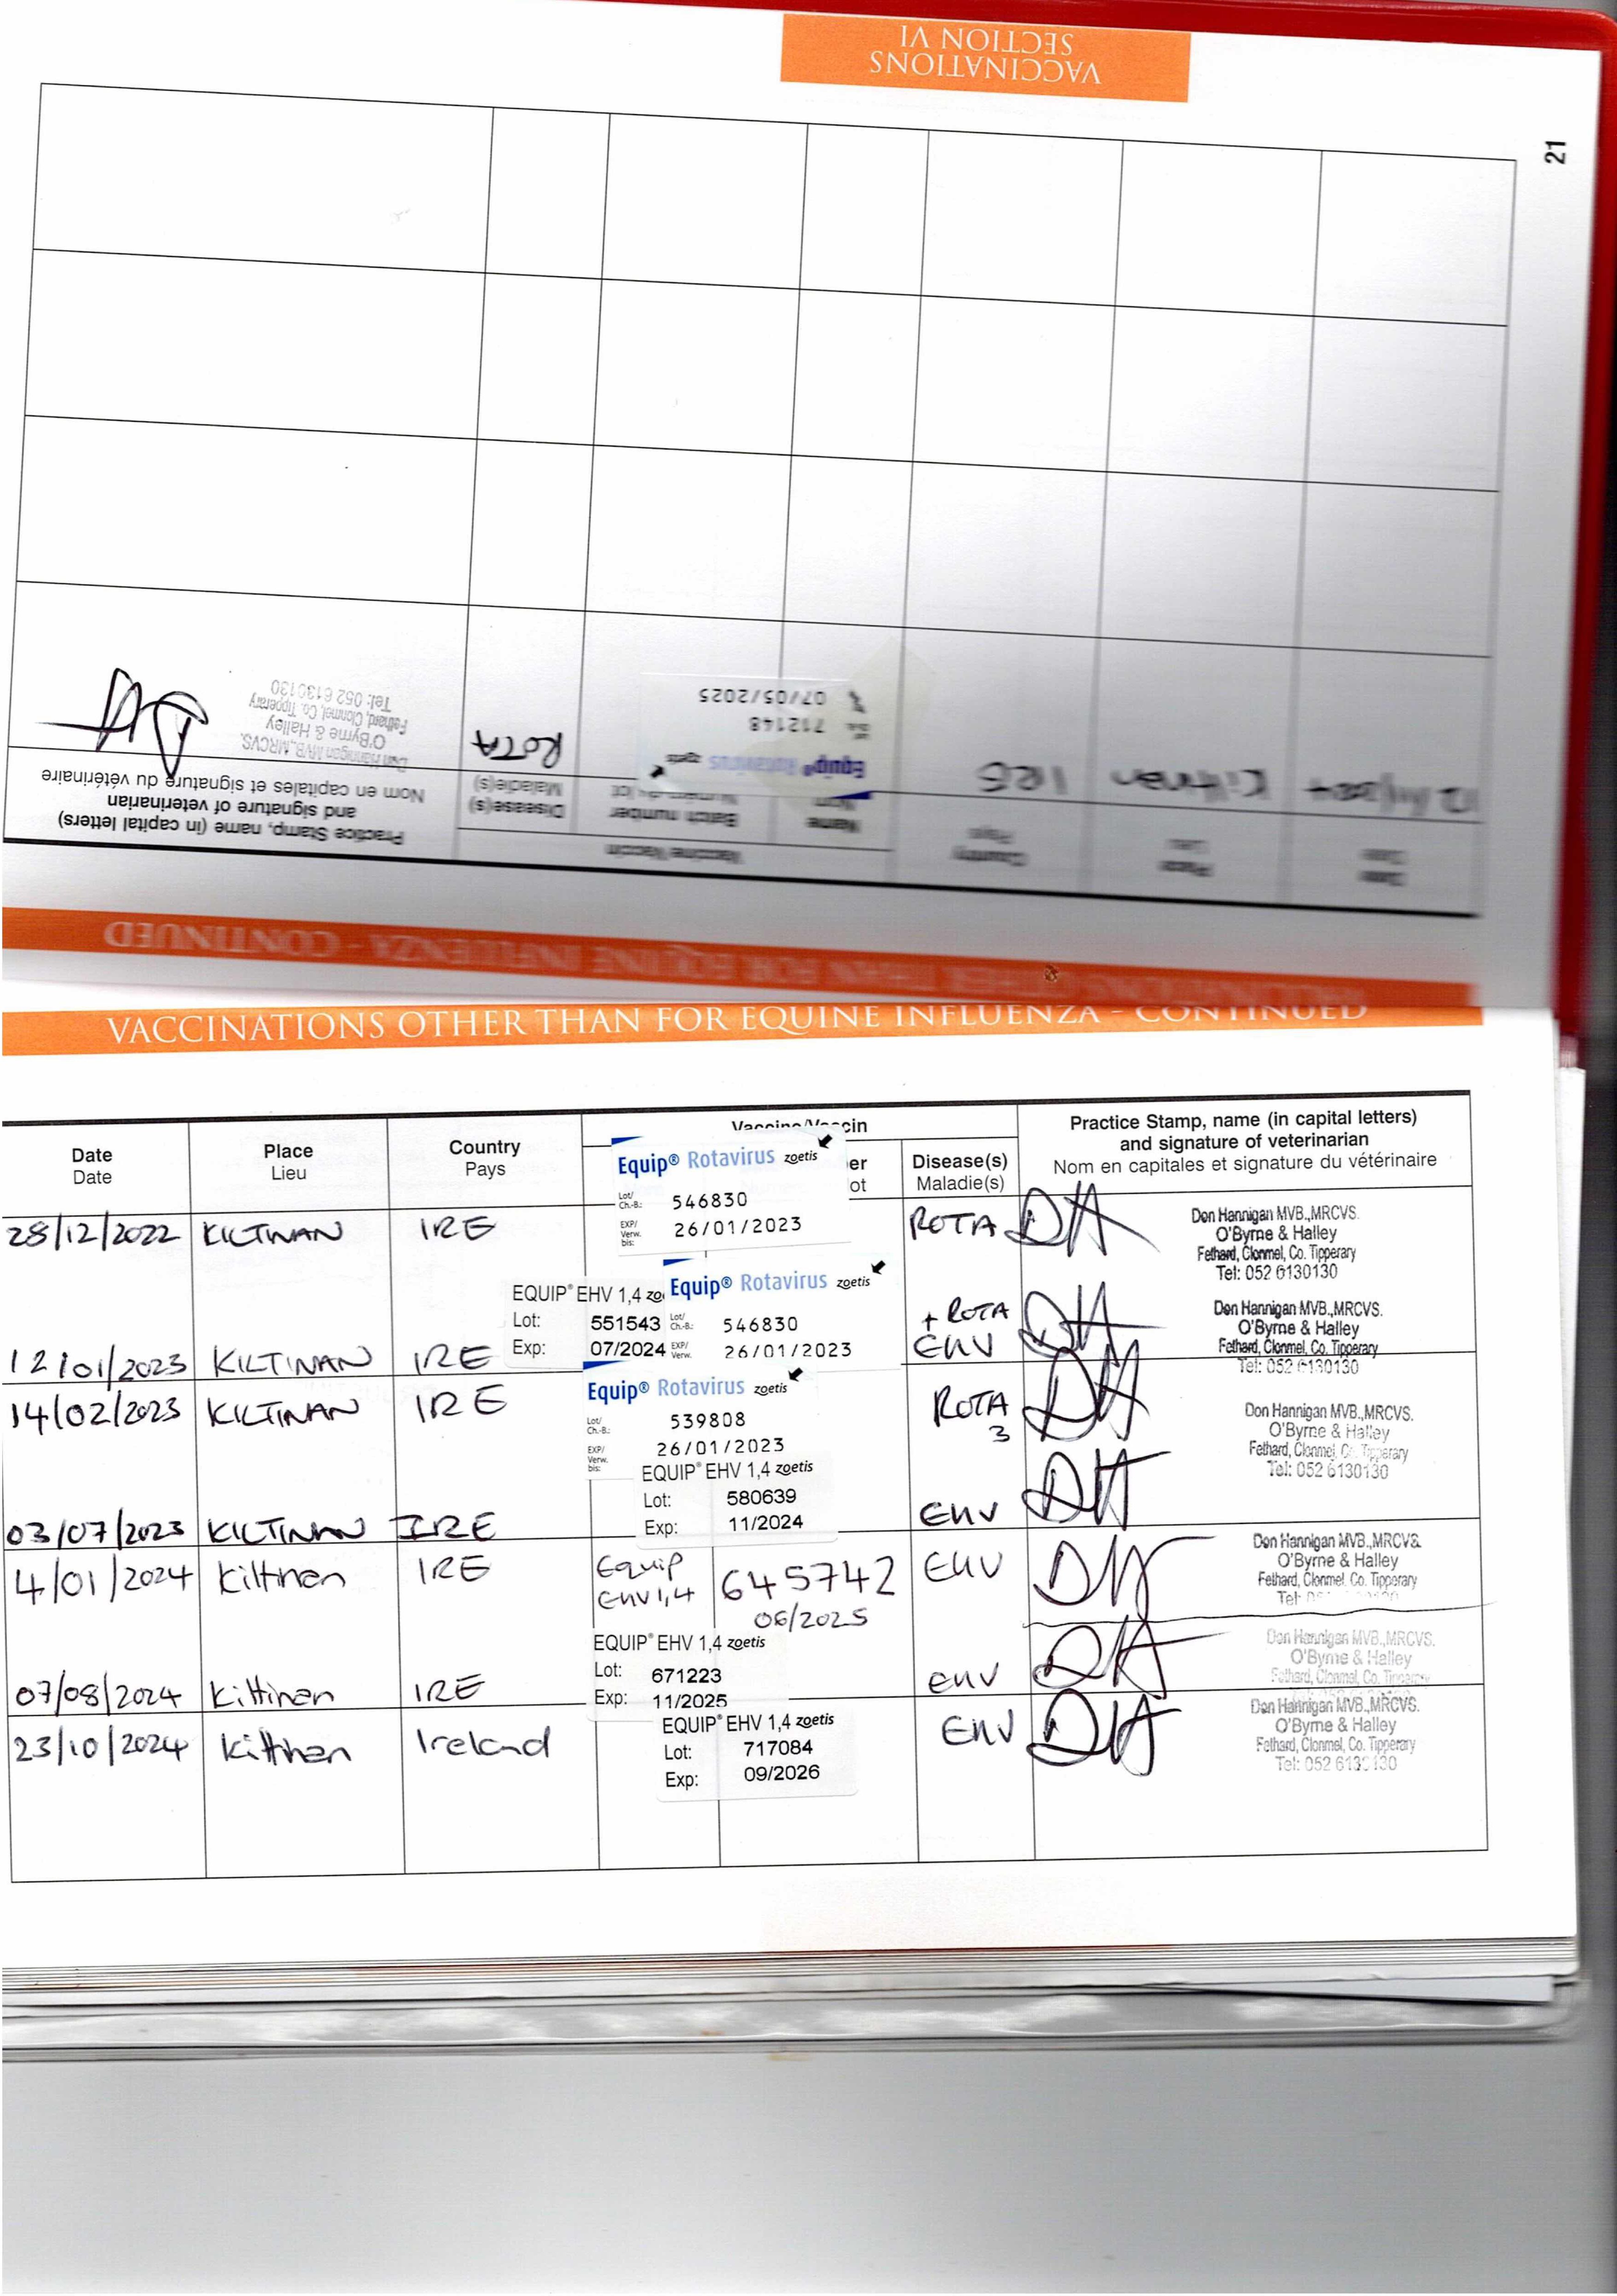 VACCINATIONS
SECTION VI
21
VACCINATIONS OTHER THAN FOR EQUINE INFLUENZA - CONTINUED
Date
Date
Place
Lieu
Country
Pays
Vaccine/Vaccin
Name
Nom
Batch number
Numéro du lot
Disease(s)
Maladie(s)
Practice Stamp, name (in capital letters)
and signature of veterinarian
Nom en capitales et signature du vétérinaire
Kiltinan IRE
Equip® Rotavirus zoetis
712148
07/05/2025
ROTA
Don Hannigan MVB.,MRCVS.
O'Byrne & Halley
Fethard, Clonmel, Co. Tipperary
Tel: 052 6130130
VACCINATIONS OTHER THAN FOR EQUINE INFLUENZA - CONTINUED
Date
Date
Place
Lieu
Country
Pays
Vaccine/Vaccin
er
ot
Disease(s)
Maladie(s)
Practice Stamp, name (in capital letters)
and signature of veterinarian
Nom en capitales et signature du vétérinaire
28/12/2022 KILTINAN IRE
Equip® Rotavirus zoetis
Lot/
Ch.-B.: 546830
EXP/
Verw.
bis: 26/01/2023
ROTA DH
Don Hannigan MVB.,MRCVS.
O'Byrne & Halley
Fethard, Clonmel, Co. Tipperary
Tel: 052 6130130
12/01/2023 KILTINAN IRE
EQUIP® EHV 1,4 zo
Lot: 551543
Exp: 07/2024
Equip® Rotavirus zoetis
Lot/
Ch.-B.: 546830
EXP/
Verw. 26/01/2023
+ ROTA
EHV DH
Don Hannigan MVB.,MRCVS.
O'Byrne & Halley
Fethard, Clonmel, Co. Tipperary
Tel: 052 6130130
14/02/2023 KILTINAN IRE
Equip® Rotavirus zoetis
Lot/
Ch.-B.: 539808
EXP/
Verw.
bis: 26/01/2023
ROTA
3 DH
Don Hannigan MVB.,MRCVS.
O'Byrne & Halley
Fethard, Clonmel, Co. Tipperary
Tel: 052 6130130
03/07/2023 KILTINAN IRE
EQUIP® EHV 1,4 zoetis
Lot: 580639
Exp: 11/2024
EHV DH
4/01/2024 Kiltinan IRE
Equip
EHV 1,4
645742
06/2025
EHV DH
Don Hannigan MVB.,MRCVS.
O'Byrne & Halley
Fethard, Clonmel, Co. Tipperary
Tel:
07/08/2024 Kiltinan IRE
EQUIP® EHV 1,4 zoetis
Lot: 671223
Exp: 11/2025
EHV DH
Don Hannigan MVB.,MRCVS.
O'Byrne & Halley
Fethard, Clonmel, Co. Tipperary
23/10/2024 Kiltinan Ireland
EQUIP® EHV 1,4 zoetis
Lot: 717084
Exp: 09/2026
EHV DH
Don Hannigan MVB.,MRCVS.
O'Byrne & Halley
Fethard, Clonmel, Co. Tipperary
Tel: 052 6130130